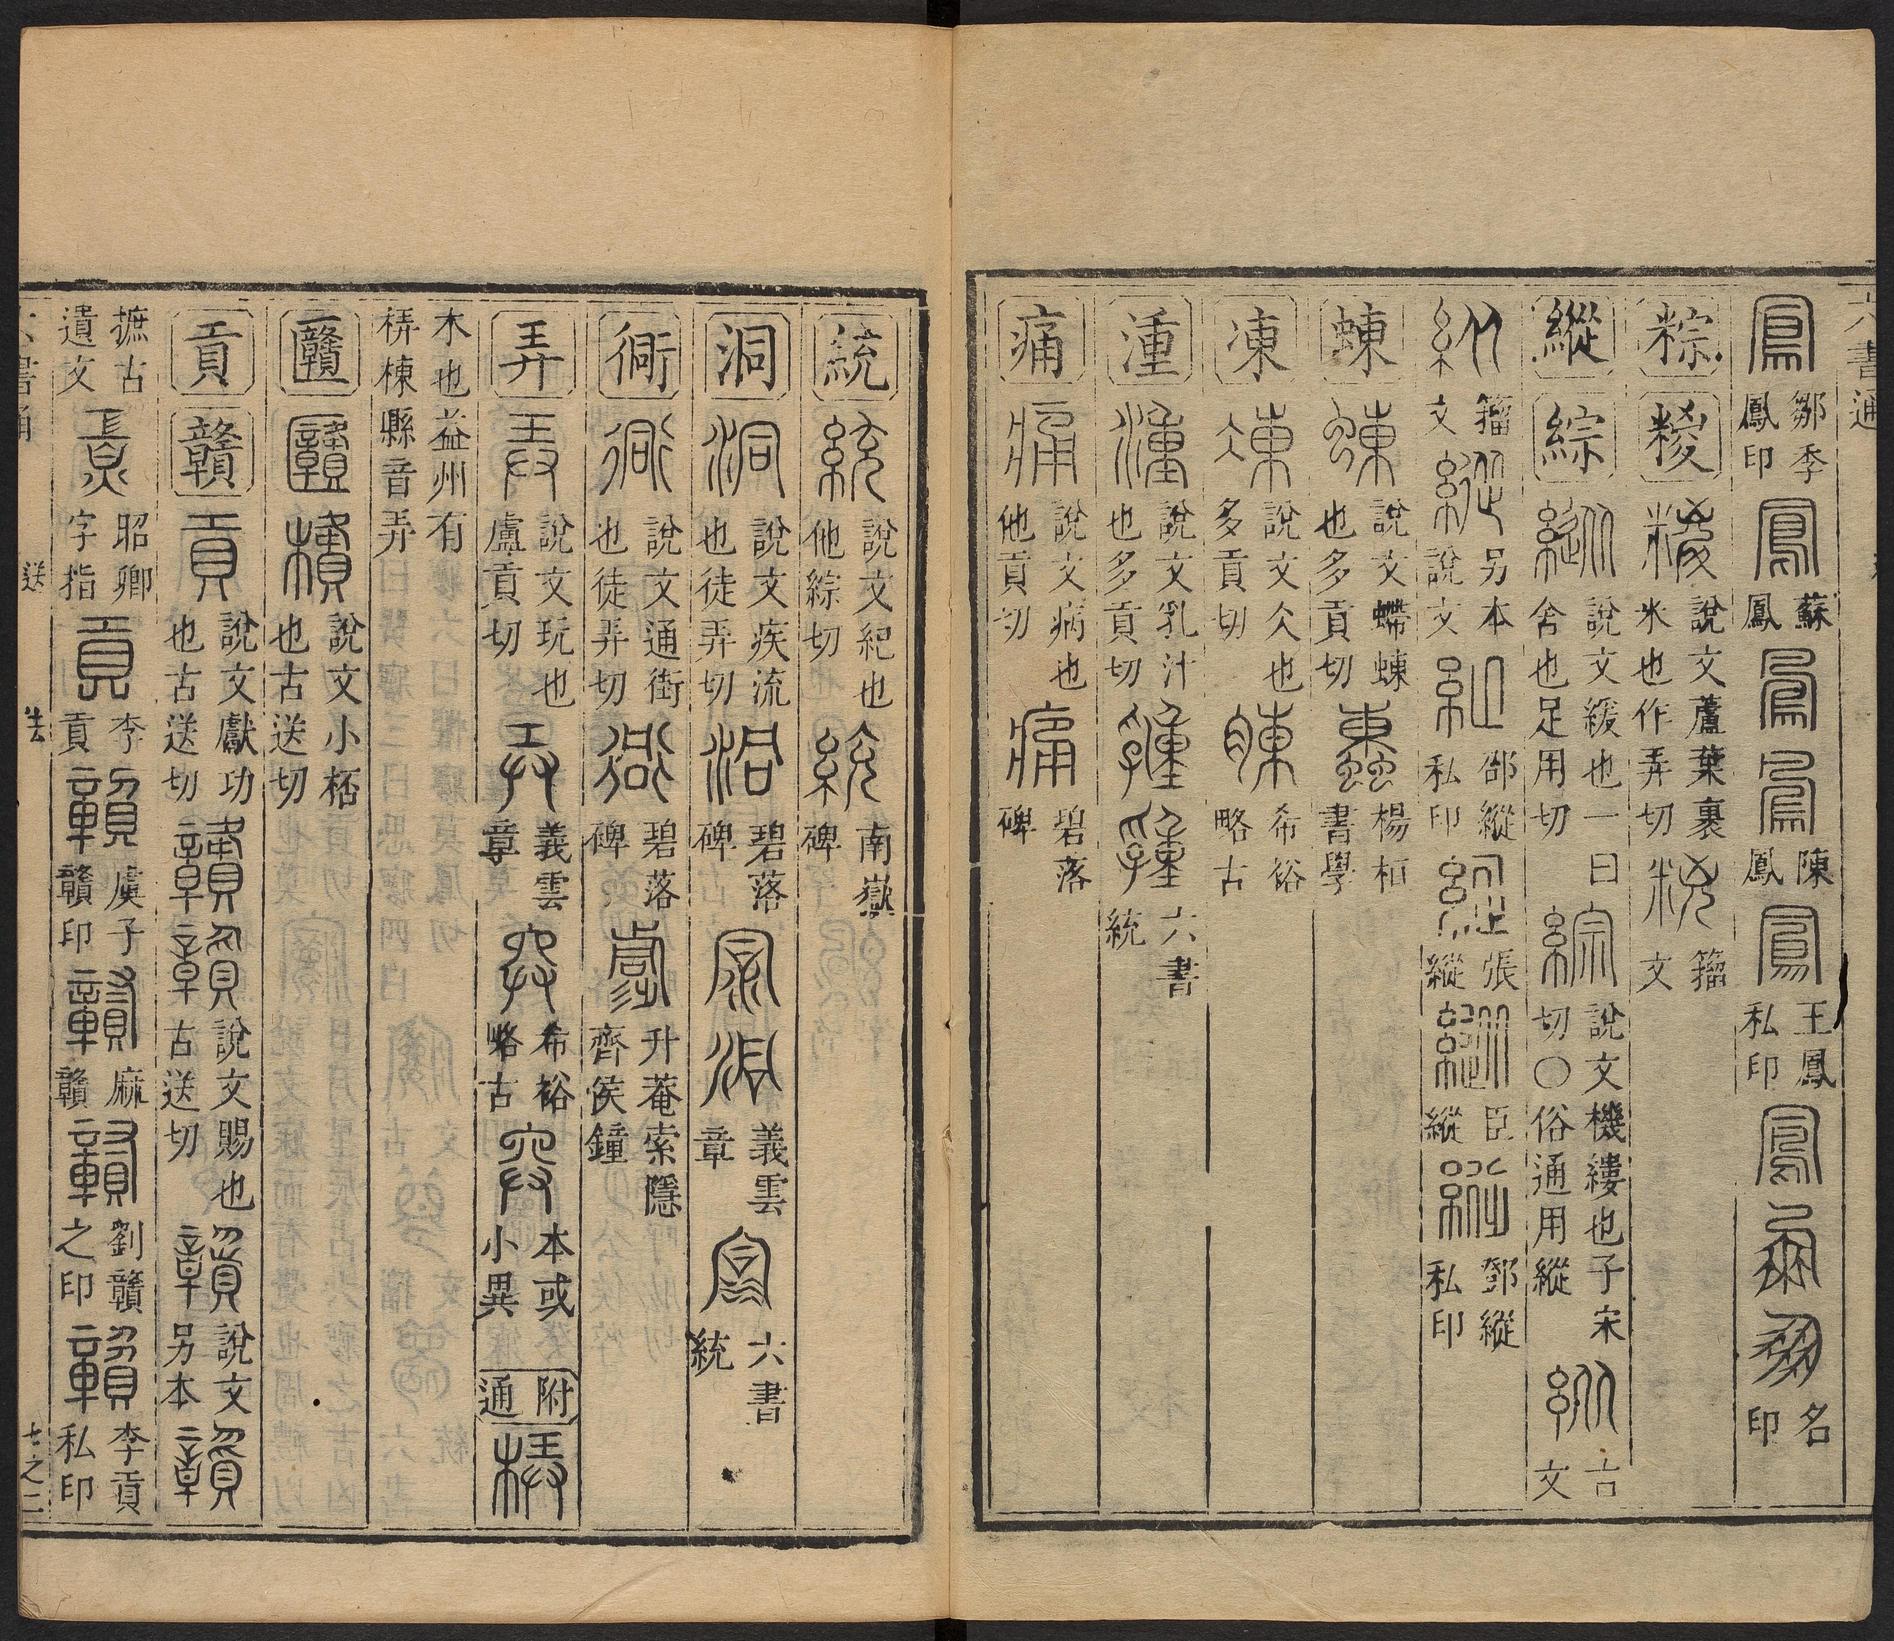 六書通
鳳 鄒李鳳印 鳳 蘇鳳 鳳 鳳 陳鳳 鳳 王鳳私印 鳳 鳳 鳳 名印
粽 糉 糉 說文蘆葉裹米也作弄切 籀文
縱 綜 縱 說文緩也一曰舍也足用切 綜 說文機縷也子宋切〇俗通用縱 古文
籀文 縱 另本說文 邵縱私印 張縱 縱 臣縱 縱 鄧縱私印
蝀 蝀 說文螮蝀也多貢切 楊桓書學
凍 凍 說文仌也多貢切 希裕略古
湩 湩 說文乳汁也多貢切 六書統
痛 痛 說文病也他貢切 痛 碧落碑
統 統 說文紀也他綜切 統 南嶽碑
洞 洞 說文疾流也徒弄切 碧落碑 義雲章 六書統
衕 衕 說文通街也徒弄切 碧落碑 升菴索隱齊侯鐘
弄 弄 說文玩也盧貢切 弄 義雲章 希裕略古 本或小異 附通 梇
木也益州有梇棟縣音弄
說文小桮也古送切
貢 贛 貢 說文獻功也古送切 贛 贛 說文賜也古送切 贛 說文另本 贛
摭古遺文 昭卿字指 貢 李貢 贛 虞子贛印 贛 麻贛 贛 劉贛之印 贛 李貢私印
六書通 送 去 七之二